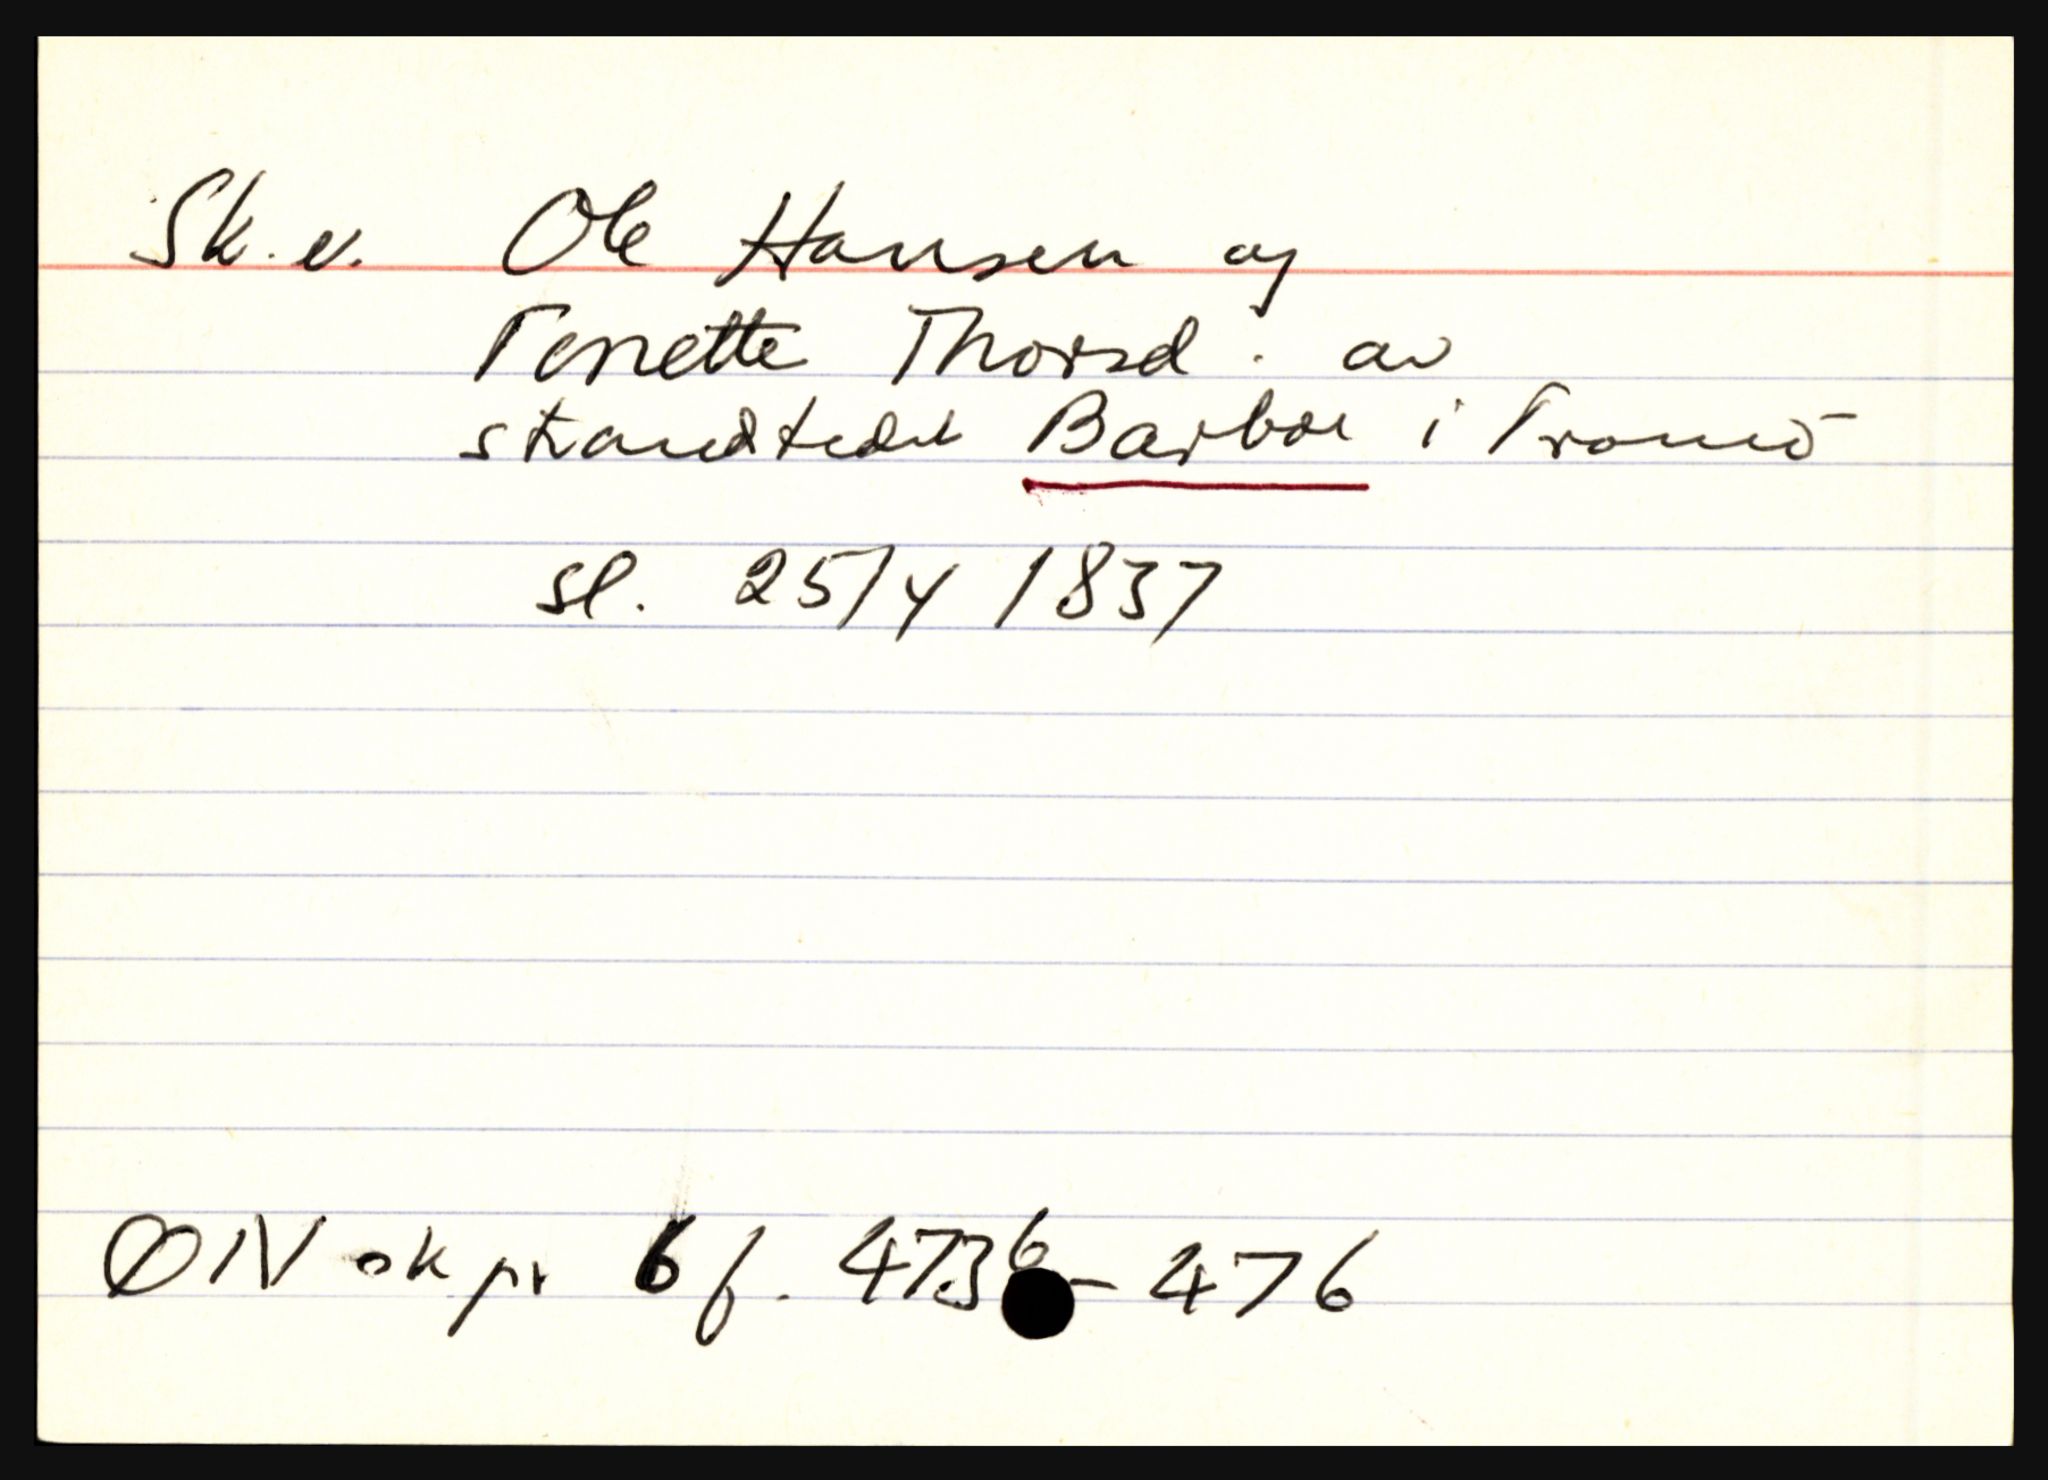 Sk.e. Ole Hansen og
Terette Thorsd. av
strandstedet Barbu i Tromø
sl. 25/4 1837
ØIN skpr 6 f. 473b - 476